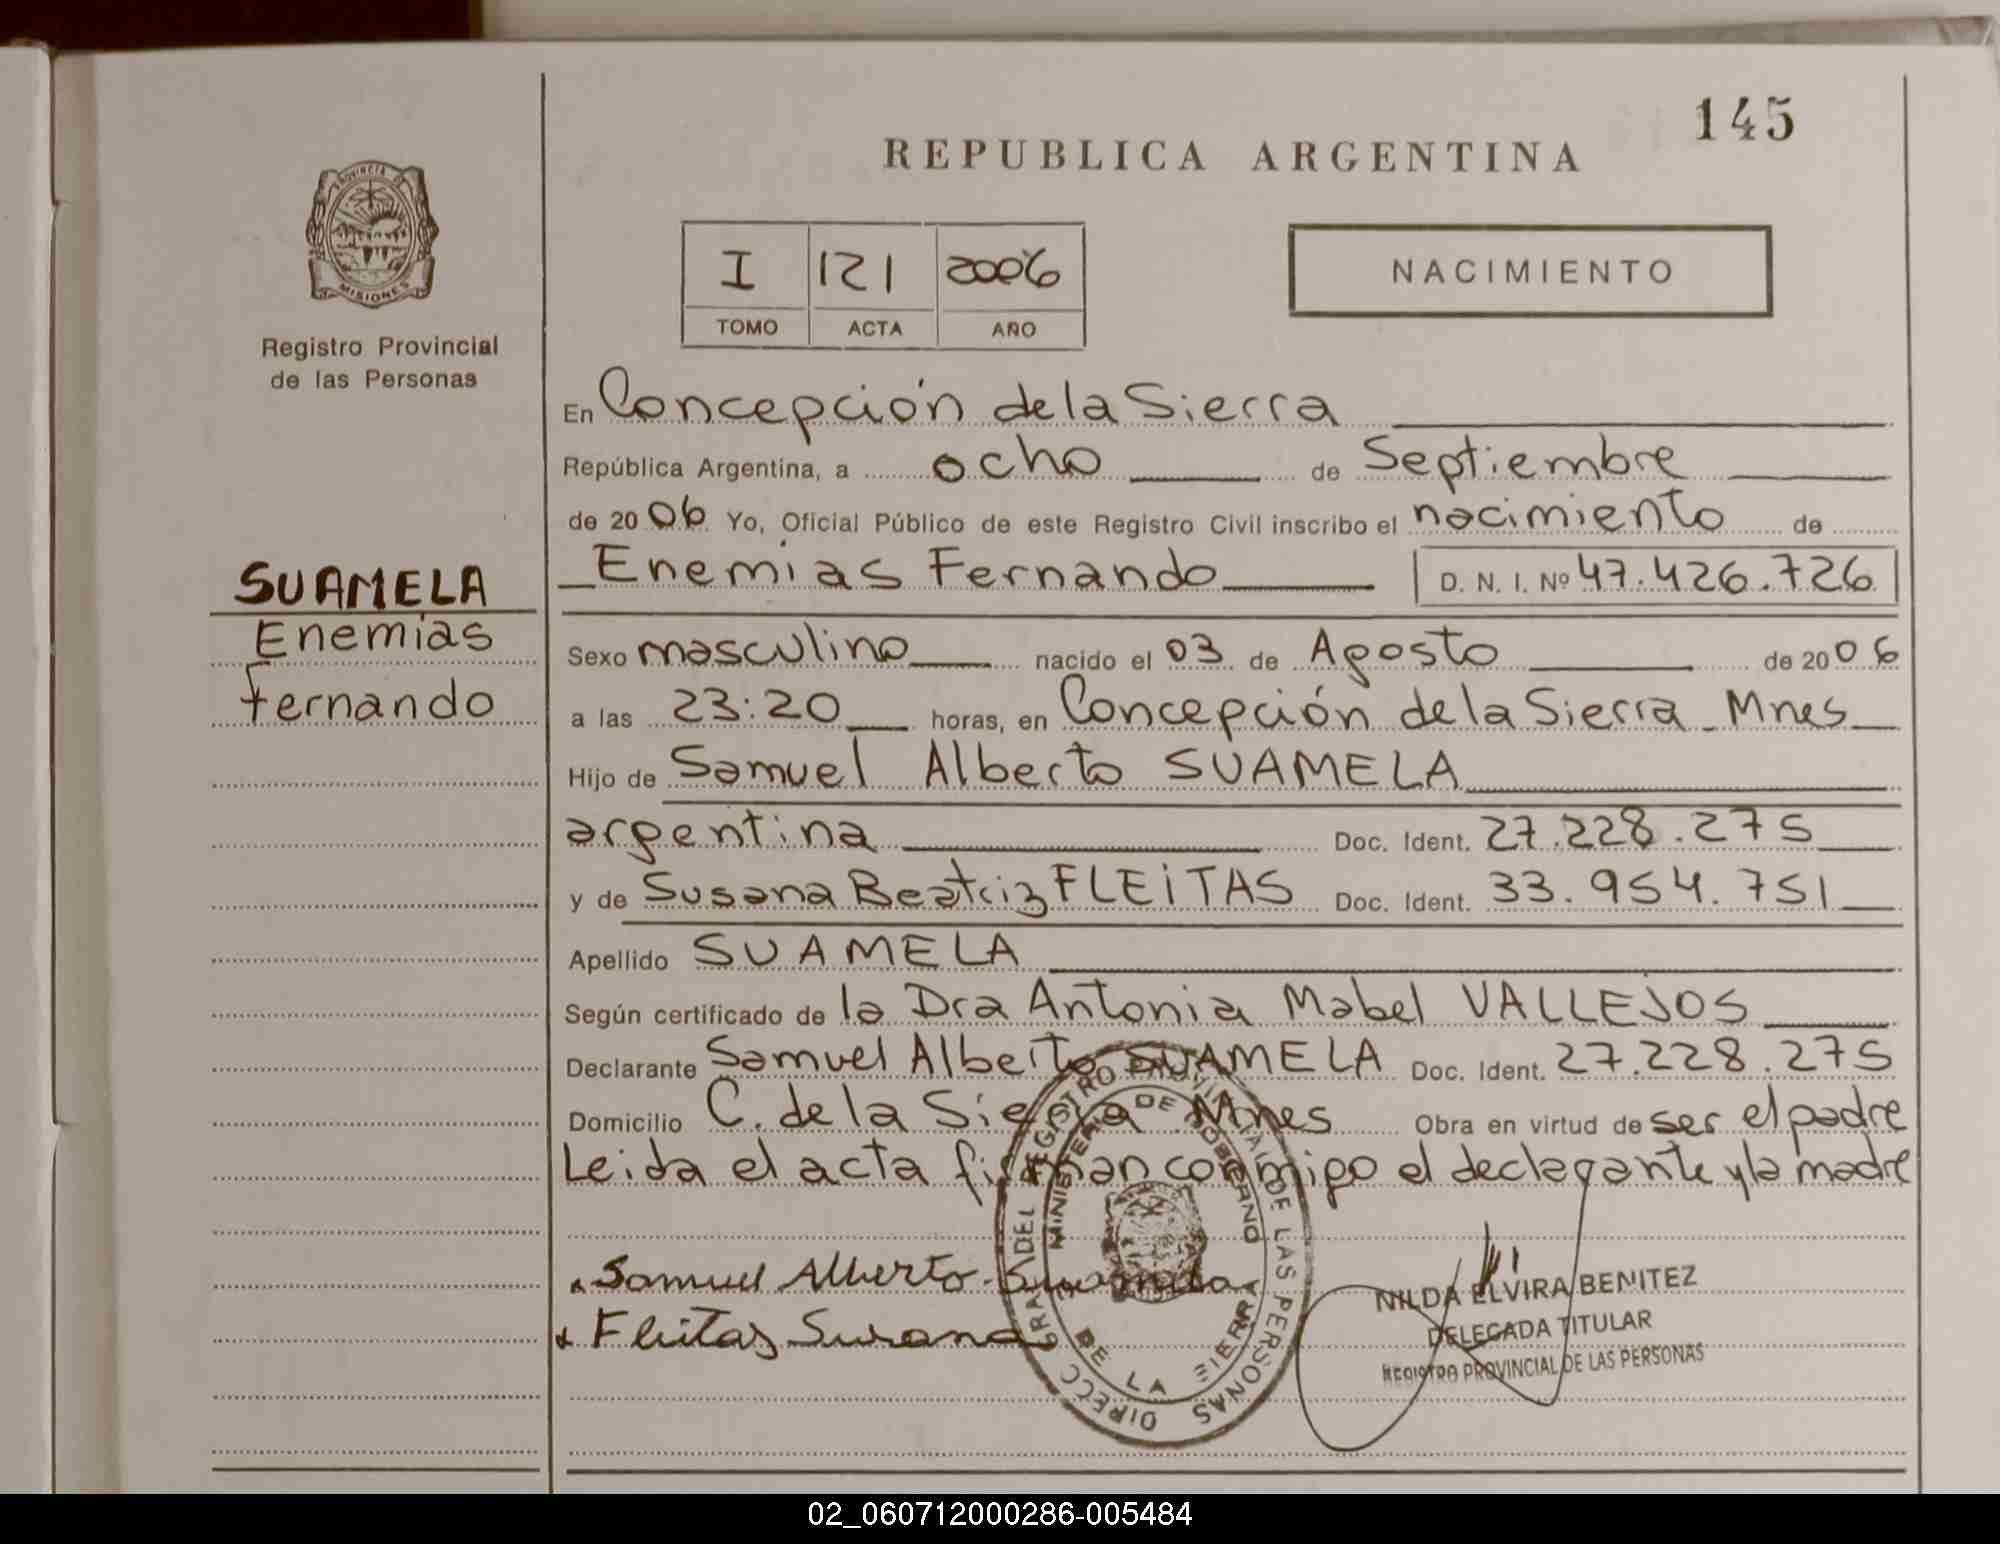 145
REPUBLICA ARGENTINA
PROVINCIA DE
MISIONES
Registro Provincial
de las Personas
I 121 2006
TOMO ACTA AÑO
NACIMIENTO
En Concepción de la Sierra
República Argentina, a ocho de Septiembre
de 2006 Yo, Oficial Público de este Registro Civil inscribo el nacimiento de
Enemias Fernando D. N. I. Nº 47.426.726
SUAMELA
Enemias
Fernando
Sexo masculino nacido el 03 de Agosto de 2006
a las 23:20 horas, en Concepción de la Sierra Mnes
Hijo de Samuel Alberto SUAMELA
argentina Doc. Ident. 27.228.275
y de Susana Beatriz FLEITAS Doc. Ident. 33.954.751
Apellido SUAMELA
Según certificado de la Dra Antonia Mabel VALLEJOS
Declarante Samuel Alberto SUAMELA Doc. Ident. 27.228.275
Domicilio C. de la Sierra Mnes Obra en virtud de ser el padre
Leida el acta firman conmigo el declarante y la madre
Samuel Alberto Suamela
Fleitas Susana
MINISTERIO DE GOBIERNO
DE LA SIERRA
NILDA ELVIRA BENITEZ
DELEGADA TITULAR
REGISTRO PROVINCIAL DE LAS PERSONAS
02_060712000286-005484